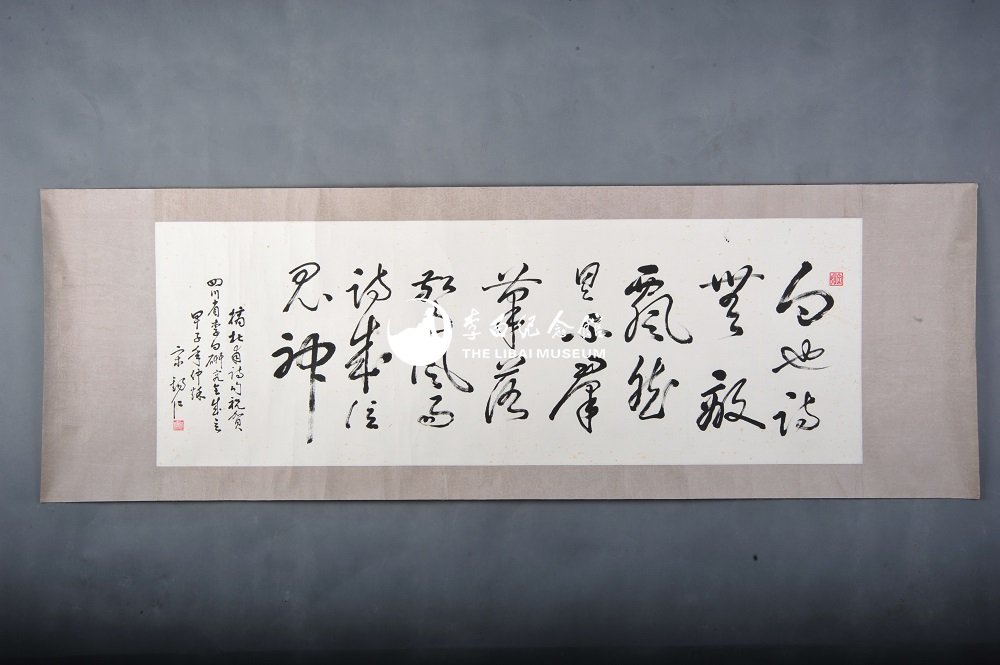 白也詩
無敵
飄然
思不羣
筆落
驚風雨
詩成泣
鬼神
摘杜甫詩句祝賀
四川省李白研究会成立
甲子年仲秋
宋錫仁
李白纪念馆
THE LIBAI MUSEUM